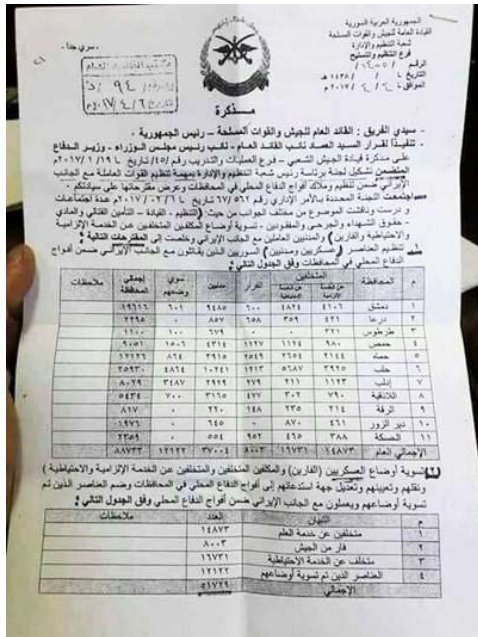 الجمهورية العربية السورية
القيادة العامة للجيش والقوات المسلحة
شعبة التنظيم والإدارة
فرع التنظيم والتسليح
الرقم /
التاريخ / / ١٤٣٨ هـ
الموافق / / ٢٠١٧ م
- سري جدا -
مكتب القائد العام
٩٤
٢٠١٧/٤/٦
مذكرة
- سيدي الفريق : القائد العام للجيش والقوات المسلحة - رئيس الجمهورية .
- تنفيذا لقرار السيد العماد نائب القائد العام - نائب رئيس مجلس الوزراء - وزير الدفاع
على مذكرة قيادة الجيش الشعبي - فرع العمليات والتدريب رقم /٤٥/ تاريخ ٢٠١٧/١/١٩م
المتضمن تشكيل لجنة برئاسة رئيس شعبة التنظيم والإدارة بمهمة تنظيم القوات العاملة مع الجانب
الإيراني ضمن تنظيم وملاك أفواج الدفاع المحلي في المحافظات وعرض مقترحاتها على سيادتكم .
- اجتمعت اللجنة المحددة بالأمر الإداري رقم ٦٧/٥٦٢ تاريخ ٢٠١٧/٠٢/٦ عدة اجتماعات
و درست وناقشت الموضوع من مختلف الجوانب من حيث : (التنظيم - القيادة - التأمين القتالي والمادي
- حقوق الشهداء والجرحى والمفقودين - تسوية أوضاع المكلفين المتخلفين عن الخدمة الإلزامية
والاحتياطية و الفارين) والمدنيين العاملين مع الجانب الإيراني وخلصت إلى المقترحات التالية :
١ـ تنظيم العناصر (عسكريين ومدنيين) السوريين الذين يقاتلون مع الجانب الإيراني ضمن أفواج
الدفاع المحلي في المحافظات وفق الجدول التالي :
م المحافظة المتخلفين الفرار مدنيين سوي وضعهم إجمالي المحافظة ملاحظات
عن الخدمة الإلزامية عن الخدمة الاحتياطية
١ دمشق ٤١٠٦ ٤٨٢٤ ٦٠٠ ٩٤٨٥ ٦٠١ ١٩٦١٦
٢ درعا ٤٢١ ٣٥٩ ٦٥٨ ٨٥٧ ٠ ٢٢٩٥
٣ طرطوس ٣٢١ ٠ ٠ ٦٧٩ ١٠٠ ١١٠٠
٤ حمص ٩٨٠ ١١٢٤ ١١٢٧ ٤٣١٤ ١٥٠٦ ٩٠٥١
٥ حماه ٢١٤٤ ٢٦٥٤ ٢٥٤٩ ٣٩١٥ ٨٦٤ ١٢١٢٦
٦ حلب ٣٩٢٥ ٥٦٨٧ ١٢١٣ ١٠٢٤١ ٤٨٦٤ ٢٥٩٣٠
٧ إدلب ١١٢٣ ٢١١ ٢٧٩ ٢٩٢٩ ٣٤٨٧ ٨٠٢٩
٨ اللاذقية ٧٩٠ ٣٠٢ ٤٧٧ ٣١٦٥ ٧٠٠ ٥٤٣٤
٩ الرقة ٢١٤ ٢٣٥ ١٤٨ ٢٢٠ ٠ ٨١٧
١٠ دير الزور ٤٦١ ٨٧٠ ٠ ٦٤٥ ٠ ١٩٧٦
١١ الحسكة ٣٨٨ ٤٦٥ ٩٥٢ ٥٥٤ ٠ ٢٣٥٩
الإجمالي العام ١٤٨٧٣ ١٦٧٣١ ٨٠٠٣ ٣٧٠٠٤ ١٢١٢٢ ٨٨٧٣٣
٢ـ تسوية أوضاع العسكريين (الفارين) والمكلفين المتخلفين والمتخلفين عن الخدمة الإلزامية والاحتياطية)
ونقلهم وتعيينهم وتعديل جهة استدعائهم إلى أفواج الدفاع المحلي في المحافظات وضم العناصر الذين تم
تسوية أوضاعهم ويعملون مع الجانب الإيراني ضمن أفواج الدفاع المحلي وفق الجدول التالي :
م البيان العدد ملاحظات
١ متخلفين عن خدمة العلم ١٤٨٧٣
٢ فار من الجيش ٨٠٠٣
٣ متخلف عن الخدمة الاحتياطية ١٦٧٣١
٤ العناصر الذين تم تسوية أوضاعهم ١٢١٢٢
الإجمالي ٥١٧٢٩